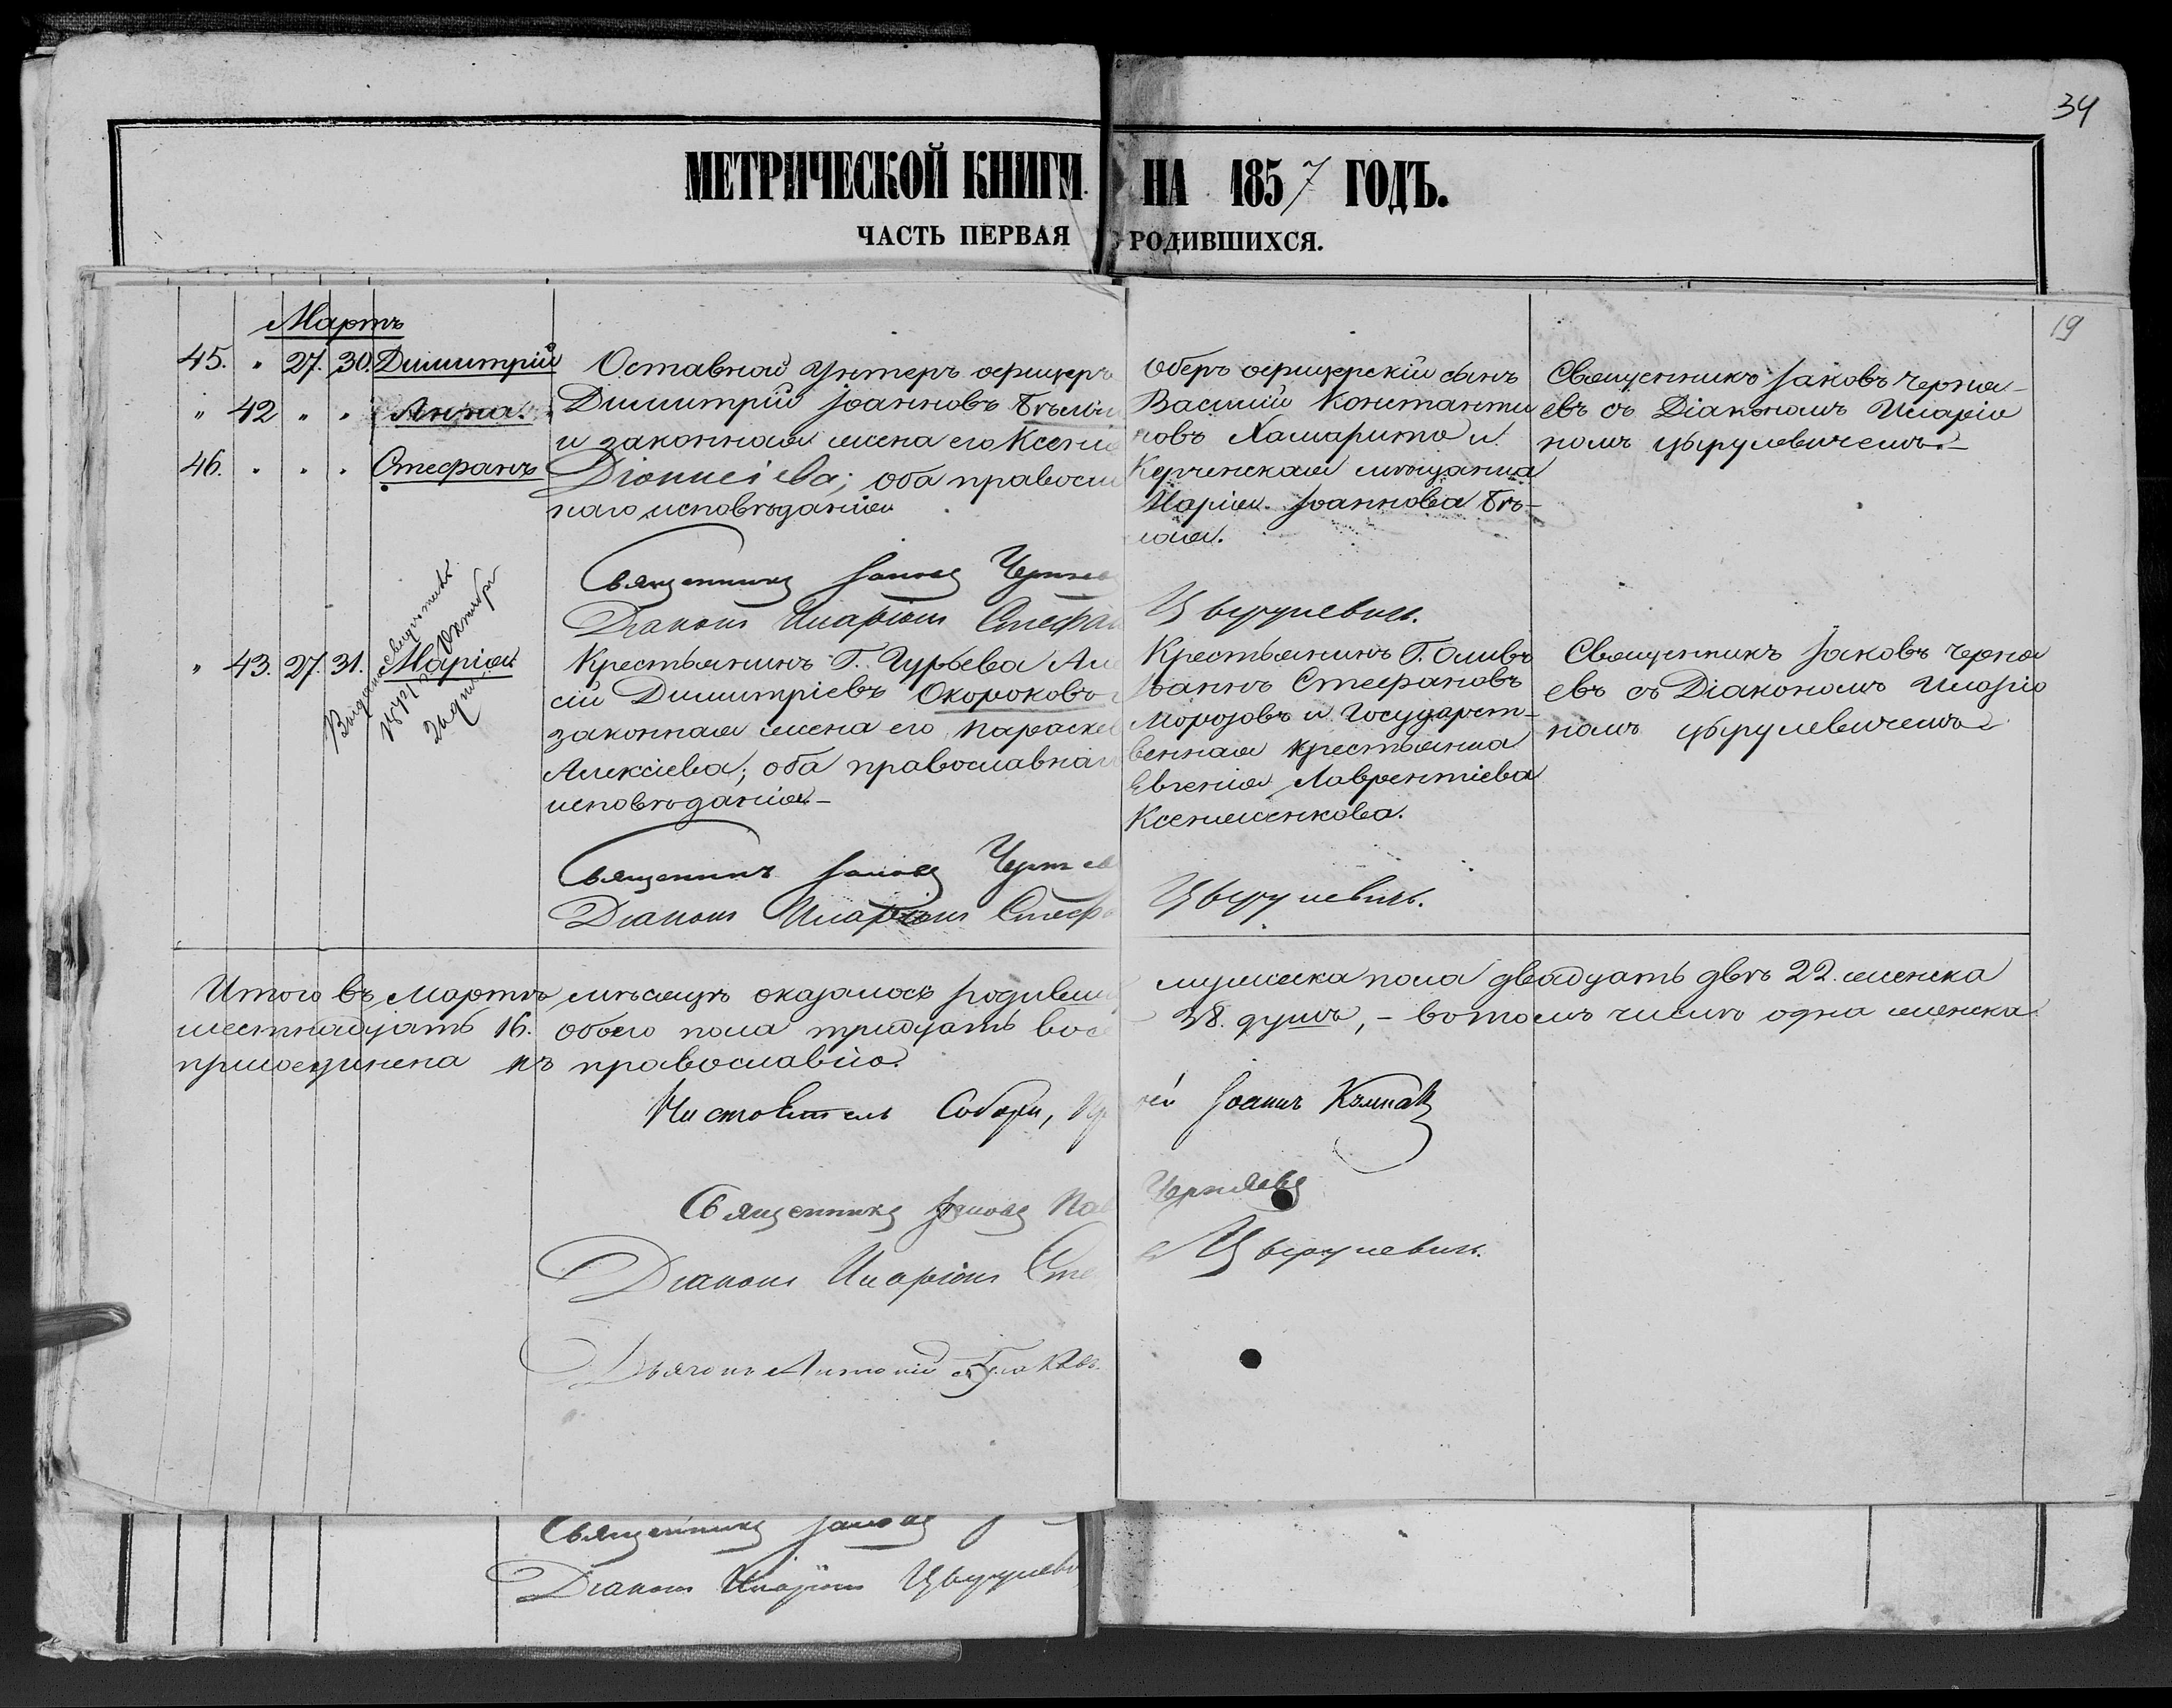 34
МЕТРИЧЕСКОЙ КНИГИ НА 1857 ГОДЪ.
ЧАСТЬ ПЕРВАЯ РОДИВШИХСЯ.
19
Мартъ
45. " 27. 30. Димитрій
" 42 " " Анна.
46. " " " Стефанъ
Оставной унтеръ офицеръ
Димитрій Іоанновъ Бѣлы
и законная жена его Ксенія
Діонисіева; оба правосла
наго исповѣданія
Оберъ офицерскій сынъ
Василій Константи
новъ Хамарито и
Керченская мѣщанка
Марія Іоаннова Бѣ-
лая.
Священникъ Іаковъ Черня-
евъ съ Діакономъ Иларіо
номъ Цырулевичемъ.-
Священникъ Іаковъ Черняев
Діаконъ Иларіонъ Стефан Цырулевичъ.
" 43. 27. 31. Марія
Выдана свидѣтельс.
Октября
Крестьянинъ Г. Гурьева Але
сій Димитріевъ Окороковъ
законная жена его Параске
Алексіева; оба православна
исповѣданія-
Крестьянинъ Г. Оливъ
Іоаннъ Стефановъ
Морозовъ и Государст-
венная крестьянка
Евгенія Лаврентіева
Ксенженкова.
Священникъ Іаковъ Черня
евъ съ Діакономъ Иларіо
номъ Цырулевичемъ
Священникъ Іаковъ Черняев
Діаконъ Иларіонъ Стефа Цырулевичъ.
Итого въ Мартѣ мѣсяцѣ оказалось родивших мужеска пола двадцать двѣ 22. женска
шестнадцать 16. обоего пола тридцать вос 38. душъ, - въ томъ числѣ одна женска
присоединена къ православію.
Настоятель Собора, Пр рей Іоаннъ
Священникъ Іаковъ Пав Черняевъ
Діаконъ Иларіонъ Сте Цырулевичъ.
Дьячокъ Антоній
Священникъ Іаковъ
Діаконъ Иларіонъ Цырулеви